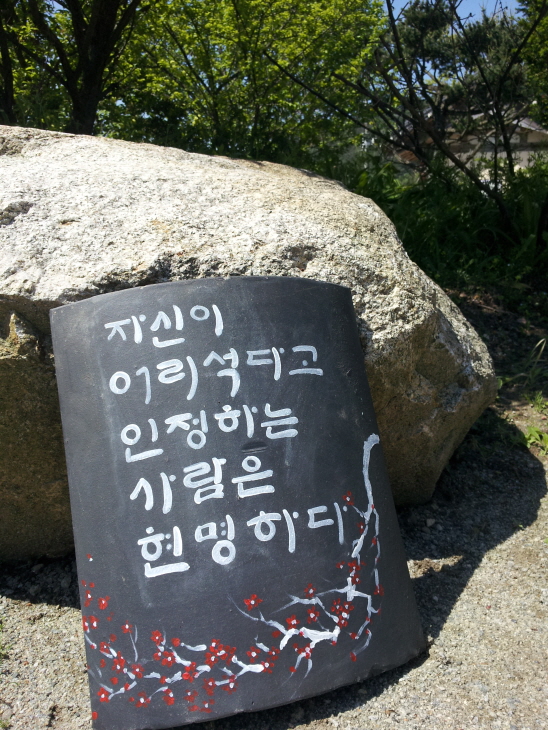 자신이
어리석다고
인정하는
사람은
현명하다